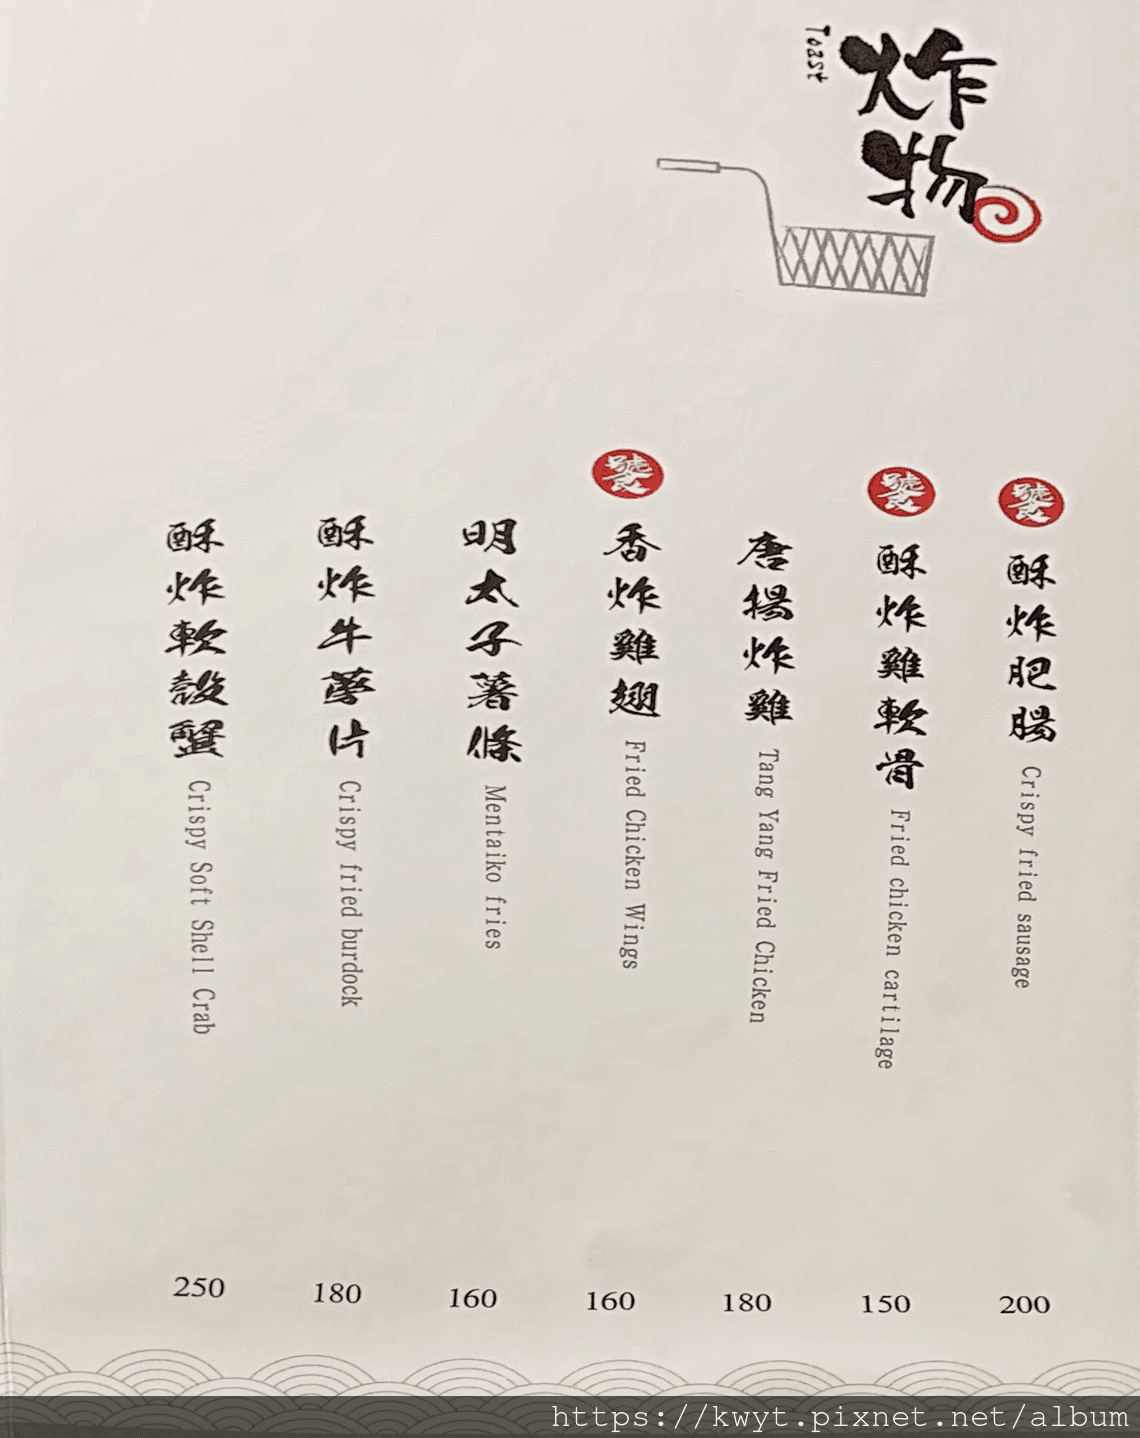 炸物
Toast
酥炸肥腸 Crispy fried sausage
200
酥炸雞軟骨 Fried chicken cartilage
150
唐揚炸雞 Tang Yang Fried Chicken
180
香炸雞翅 Fried Chicken Wings
160
明太子薯條 Mentaiko fries
160
酥炸牛蒡片 Crispy fried burdock
180
酥炸軟殼蟹 Crispy Soft Shell Crab
250
https://kwyt.pixnet.net/album